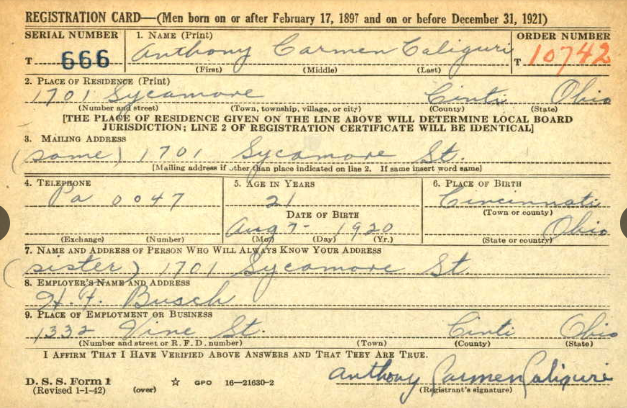 REGISTRATION CARD—(Men born on or after February 17, 1897 and on or before December 31, 1921)
SERIAL NUMBER 1. NAME (Print) ORDER NUMBER
T 666 Anthony Carmen Caliguri T 10742
(First) (Middle) (Last)
2. PLACE OF RESIDENCE (Print)
1701 Sycamore Cinti Ohio
(Number and street) (Town, township, village, or city) (County) (State)
[THE PLACE OF RESIDENCE GIVEN ON THE LINE ABOVE WILL DETERMINE LOCAL BOARD
JURISDICTION; LINE 2 OF REGISTRATION CERTIFICATE WILL BE IDENTICAL]
3. MAILING ADDRESS
(same) 1701 Sycamore St.
[Mailing address if other than place indicated on line 2. If same insert word same]
4. TELEPHONE 5. AGE IN YEARS 6. PLACE OF BIRTH
Pa 0047 21 Cincinnati
DATE OF BIRTH (Town or county)
Aug 7- 1920 Ohio
(Exchange) (Number) (Mo.) (Day) (Yr.) (State or country)
7. NAME AND ADDRESS OF PERSON WHO WILL ALWAYS KNOW YOUR ADDRESS
(sister) 1701 Sycamore St
8. EMPLOYER'S NAME AND ADDRESS
H. F. Busch
9. PLACE OF EMPLOYMENT OR BUSINESS
1332 Vine St. Cinti Ohio
(Number and street or R. F. D. number) (Town) (County) (State)
I AFFIRM THAT I HAVE VERIFIED ABOVE ANSWERS AND THAT THEY ARE TRUE.
D. S. S. Form 1
(Revised 1-1-42) (over) ☆ GPO 16—21630-2 Anthony Carmen Caliguri
(Registrant's signature)